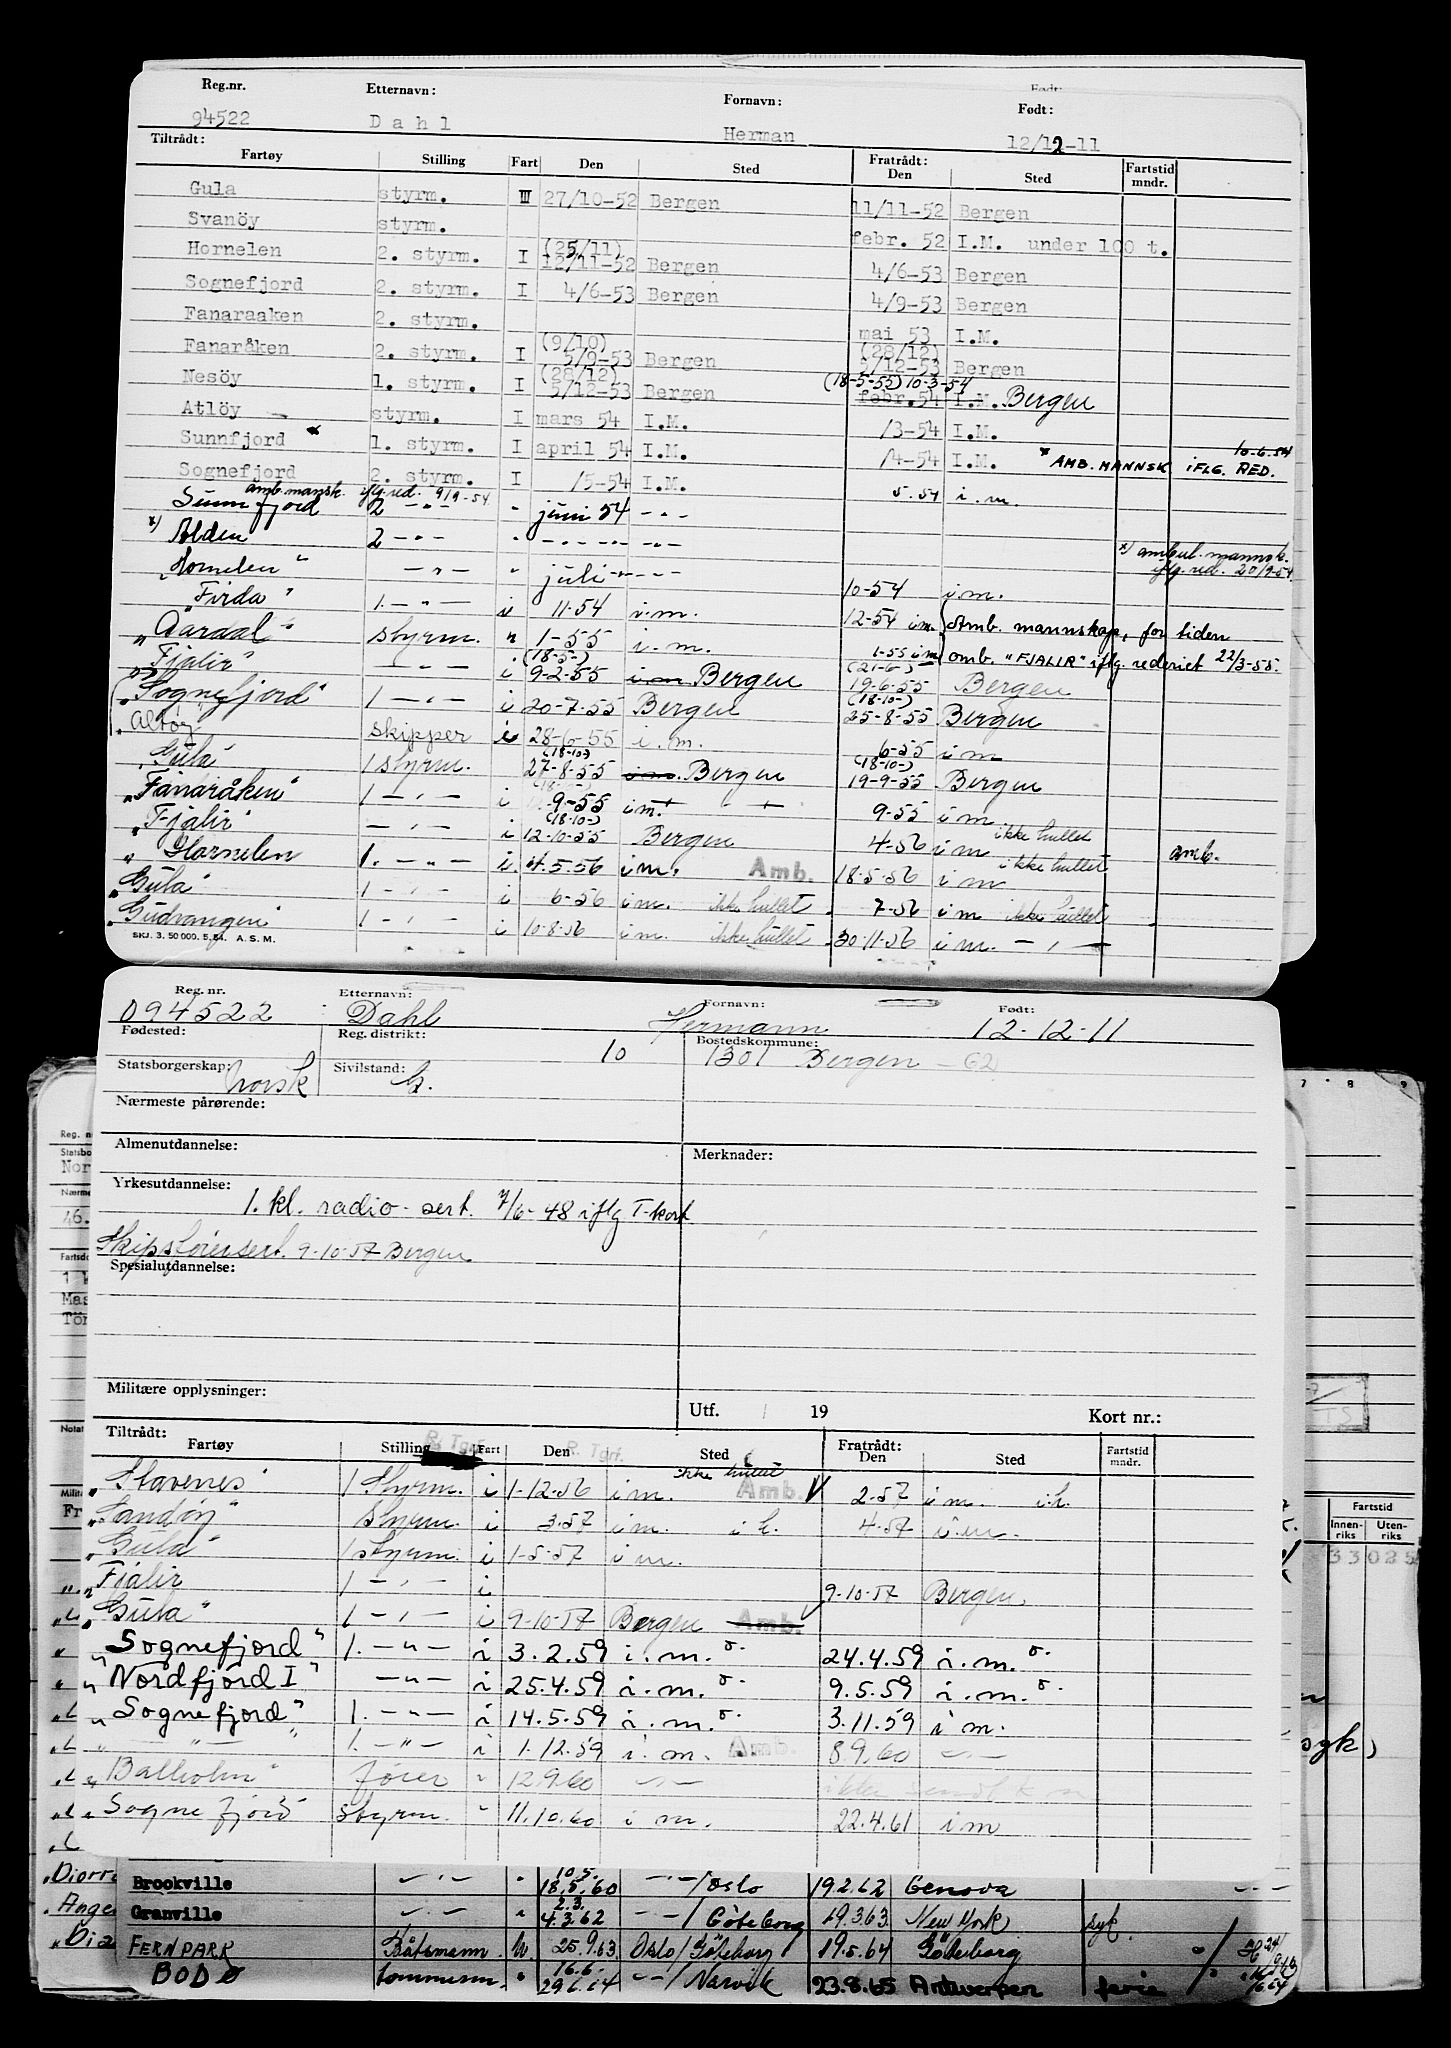 Reg.nr. Etternavn: Fornavn: Født:
94522 Dahl Herman 12/12-11
Tiltrådt: Fratrådt:
Fartøy Stilling Fart Den Sted Den Sted Fartstid mndr.
Gula styrm. III 27/10-52 Bergen 11/11-52 Bergen
Svanöy styrm. febr. 52 I.M. under 100 t.
Hornelen 2. styrm. I (25/11) 12/11-52 Bergen 4/6-53 Bergen
Sognefjord 2. styrm. I 4/6-53 Bergen 4/9-53 Bergen
Fanaraaken 2. styrm. mai 53 I.M.
Fanaråken 2. styrm. I (9/10) 5/9-53 Bergen (28/12) 5/12-53 Bergen
Nesöy 1. styrm. I (28/12) 5/12-53 Bergen (18-5-55) 10-3-54 febr. 54 I.M. Bergen
Atlöy styrm. I mars 54 I.M. /3-54 I.M.
Sunnfjord x 1. styrm. I april 54 I.M. /4-54 I.M. x AMB. MANNSK. IFLG. RED. 10-6-54
Sognefjord 2. styrm. I /5-54 I.M. 5.54 i.m.
amb. mansk. iflg. red. 9/9-54
Sunnfjord 2 -"- " juni 54 -"-
x) Alden 2 -"- " -"- -"- x) ambul. mannsk. iflg. red. 20/9-54
"Hornelen" -"- " juli -"- 10-54 i.m.
"Firda" 1. -"- i 11-54 i.m. 12-54 i.m. Amb. mannskap, for tiden
"Aardal" styrm. " 1-55 i.m. 1-55 i m omb. "FJALIR" iflg. rederiet 22/3-55.
"Fjalir" -"- i (18-5-) 9-2-55 i m Bergen (21-6-) 19-6-55 Bergen
"Sognefjord" 1 -"- i 20-7-55 Bergen (18-10-) 25-8-55 Bergen
"Atløy" skipper i 28-6-55 i.m. 6-55 i m
"Gula" 1 styrm. (18-10-) 27-8-55 i m. Bergen (18-10-) 19-9-55 Bergen
"Fanaråken" 1 -"- i 9-55 i m. 9-55 i m
"Fjalir" -"- i (18-10-) 12-10-55 Bergen 4-56 i m ikke hullet amb.
"Hornelen 1. -"- i. 4.5.56 i m. Amb. 18.5.56 i m ikke hullet
"Gula" 1 -"- i 6-56 i m. ikke hullet 7-56 i m ikke hullet
"Gudvangen" 1 -"- i 10-8-56 i m. ikke hullet 30-11-56 i m. -"-
SKJ. 3. 50 000. 5.54. A.S.M.
Reg. nr. Etternavn: Fornavn: Født:
094522 Dahl Hermann 12-12-11
Fødested: Reg. distrikt: 10 Bostedskommune: 1301 Bergen - 62
Statsborgerskap: norsk Sivilstand: G.
Nærmeste pårørende:
Almenutdannelse: Merknader:
Yrkesutdannelse:
1. kl. radio-sert. 7/6-48 iflg T-kort
Skipsførersert. 9-10-57 Bergen
Spesialutdannelse:
Militære opplysninger:
Utf. 19 Kort nr.:
Tiltrådt: Fratrådt:
Fartøy Stilling Fart Den Sted Den Sted Fartstid mndr.
"Stavenes" 1 Styrm. i 1-12-56 i m. ikke hullet Amb. 2-57 i m. i.h.
"Sandøy" Styrm. i 3-57 i m. i h. 4-57 i m.
"Gula" 1 styrm. i 1-5-57 i m.
"Fjalir 1 -"- i 9-10-57 Bergen.
"Gula" 1 -"- i 9-10-57 Bergen Amb.
"Sognefjord" 1. -"- i 3.2.59 i.m. 24.4.59 i.m.
"Nordfjord I" -"- i 25.4.59 i.m. 9.5.59 i.m.
"Sognefjord" 1. -"- i 14.5.59 i.m. 3.11.59 i m.
" -"- " 1. -"- i 1.12.59 i.m. Amb. 8.9.60 -"-
"Balholm" fører " 12.9.60 -"-
"Sognefjord styrm. " 11.10.60 i m. 22.4.61 i m
Brookville -"- " 10.5. 18.5.60 -"-/Oslo 19.2.62 Genova -"-
Granville -"- " 2.3. 4.3.62 -"-/Göteborg 19.3.63 New York syk.
FERNPARK Båtsmann U. 25.9.63 Oslo/Göteborg 19.5.64 Göteborg
BODØ tømmerm. " 16.6. 29.6.64 -"-/Narvik 23.8.65 Antwerpen ferie
Fartstid
Innenriks Utenriks